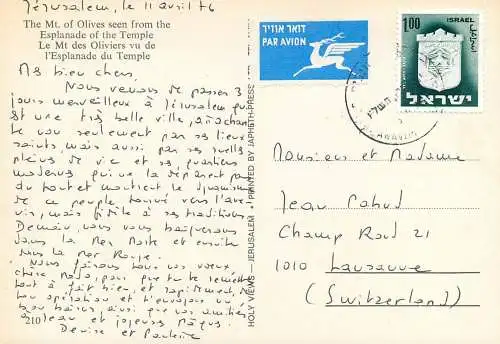 Jérusalem, le 11 avril 76
The Mt. of Olives seen from the
Esplanade of the Temple
Le Mt des Oliviers vu de
l'Esplanade du Temple
Mes bien chers,
Nous venons de passer 3
jours merveilleux à Jérusalem qui
est une très belle ville, attachante
non seulement par ses lieux
saints, mais aussi par ses ruelles
pleines de vie et ses quartiers
modernes qui ne la déparent pas
du tout et montrent le dynamisme
de ce peuple tourné vers l'avenir
mais fidèle à ses traditions
Demain, nous nous baignerons
dans la Mer Morte et ensuite
dans la Mer Rouge.
Nous faisons tous nos vœux,
chère, pour que tu te remettes
tout à fait bien, et rapidement, de
ton opération et t'envoyons nos
bons baisers, ainsi que nos amitiés
à et joyeuses Pâques.
Denise et
210
HOLY VIEWS - JERUSALEM • PRINTED BY JAPHETH-PRESS
דואר אוויר
PAR AVION
1.00
ISRAEL
اسرائيل
ישראל
Monsieur et Madame
Jean
Champ Rond 21
1010 Lausanne
(Switzerland)